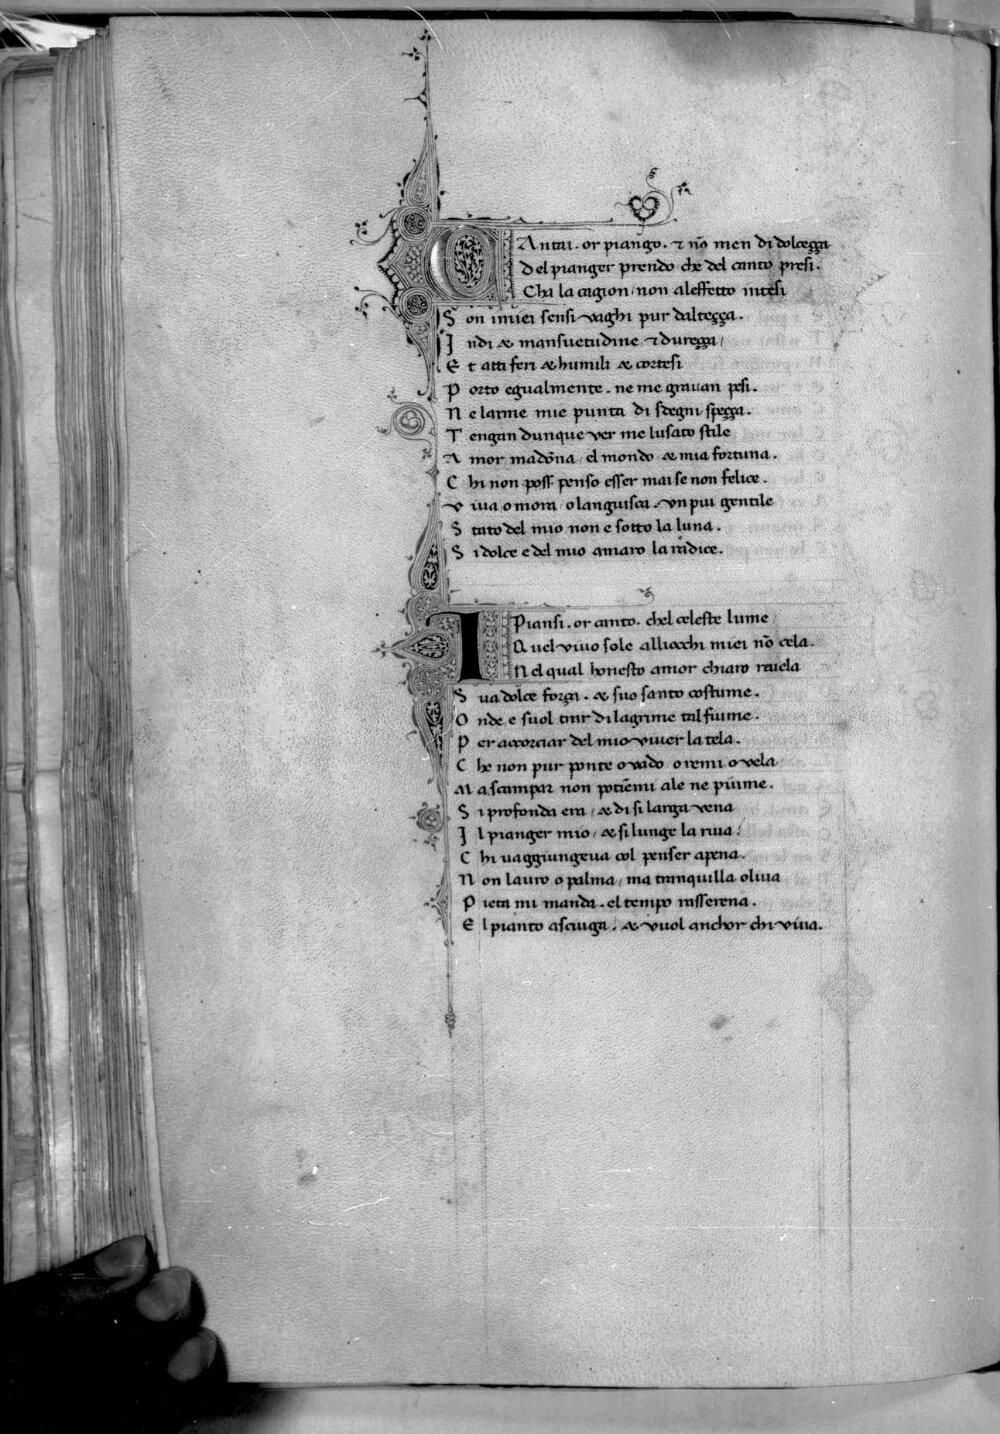 CAntai. or piango. ⁊ nõ men di dolceçça
Del pianger prendo che del canto presi.
Cha la cagion/non aleffetto intesi
Son imiei sensi vaghi pur dalteçça.
Indi & mansuetudine/⁊ dureçça/
Et atti feri & humili & cortesi
Porto egualmente. ne me grauan pesi.
Ne larme mie punta di sdegni speçça.
Tengan dunque ver me lusato stile
Amor/madõna/el mondo & mia fortuna.
Chi non poss. penso esser mai se non felice.
Viua o mora/o languisca. vn piu gentile
Stato del mio non e sotto la luna.
Si dolce e del mio amaro la radice.
IPiansi. or canto. chel celeste lume
Quel viuo sole alliocchi miei nõ cela.
Nel qual honesto amor chiaro reuela
Sua dolce força. & suo santo costume.
Onde e suol trar di lagrime tal fiume.
Per accorciar del mio viuer la tela.
Che non pur ponte o vado/o remi o vela
Ma scampar non potiemi ale ne piume.
Si profonda era/& di si larga vena
Il pianger mio/& si lunge la riua/
Chi uaggiungeua col penser apena.
Non lauro o palma/ma tranquilla oliua
Pieta mi manda. el tempo rasserena.
El pianto asciuga. & vuol anchor chi viua.